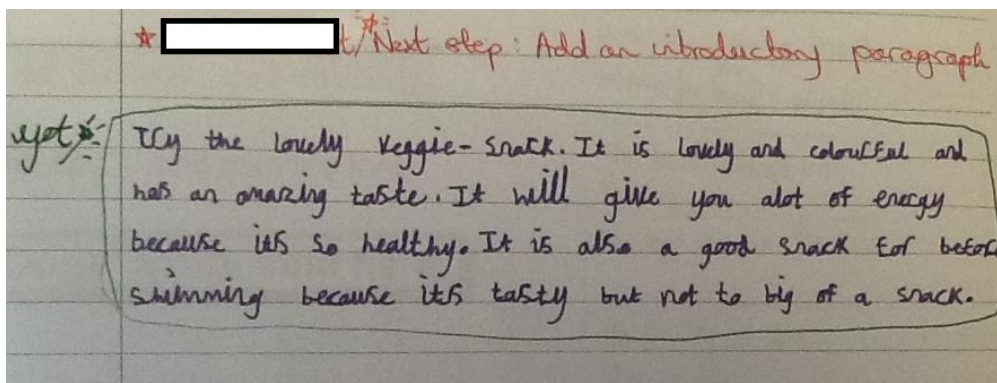 Next step: Add an introductory paragraph
Try the lovely Veggie-Snack. It is lovely and colourful and
has an amazing taste. It will give you alot of energy
because its so healthy. It is also a good snack for before
swimming because its tasty but not to big of a snack.